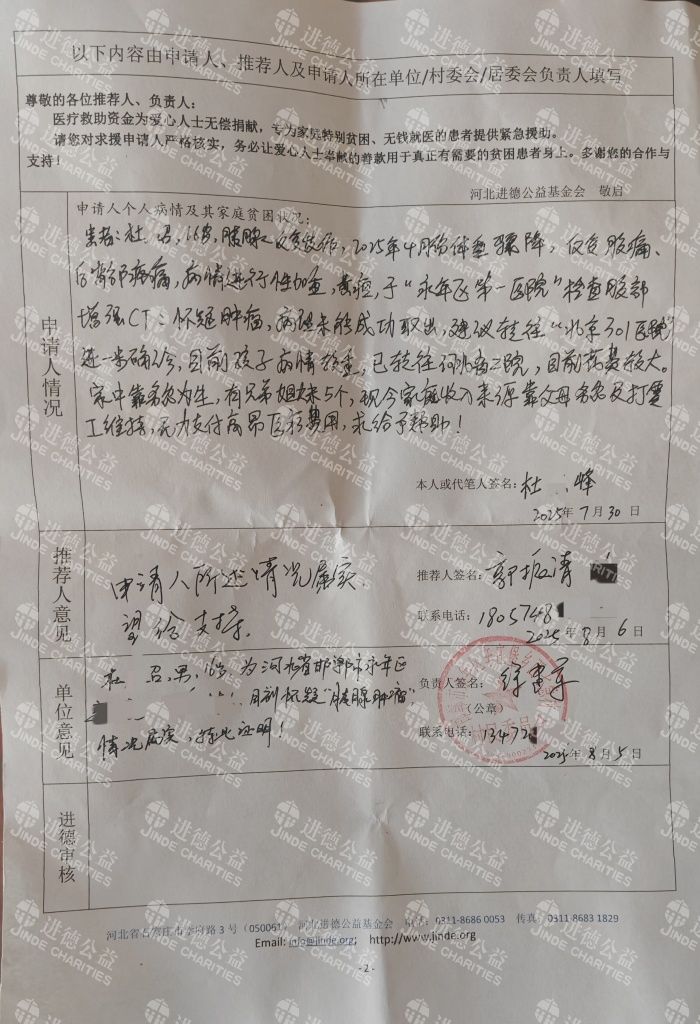 以下内容由申请人、推荐人及申请人所在单位/村委会/居委会负责人填写
尊敬的各位推荐人、负责人：
医疗救助资金为爱心人士无偿捐献，专为家庭特别贫困、无钱就医的患者提供紧急援助。
请您对求援申请人严格核实，务必让爱心人士奉献的善款用于真正有需要的贫困患者身上。多谢您的合作与
支持！
河北进德公益基金会 敬启
申请人情况
申请人个人病情及其家庭贫困状况：
患者：杜 男，16岁，胰腺 2025年4月份体重骤降，仅食腹痛、
后背部疼痛，病情进行性加重，黄疸，于“永年区第一医院”检查腹部
增强CT：怀疑肿瘤，病理未能成功取出，建议转往“北京301医院”
进一步确诊，目前孩子病情较重，已转往河北省二院，目前花费较大。
家中靠务农为生，有兄弟姐妹5个，现今家庭收入来源靠父母务农及打零
工维持，无力支付高昂医疗费用，求给予帮助！
本人或代笔人签名：杜 峰
2025年7月30日
推荐人意见
申请人所述情况属实，
望给支持。
推荐人签名：郭振清
联系电话：1805748
2025年8月6日
单位意见
杜 召，男，16岁，为河北省邯郸市永年区
月前怀疑“胰腺肿瘤”，
情况属实，特此证明！
负责人签名：
（公章）
联系电话：13472
2025年8月5日
进德审核
河北省石家庄市金府路3号（050061） 河北进德公益基金会 电话：0311-8686 0053 传真：0311-8683 1829
Email: info@jinde.org; http://www.jinde.org
- 2 -
进德公益
JINDE CHARITIES